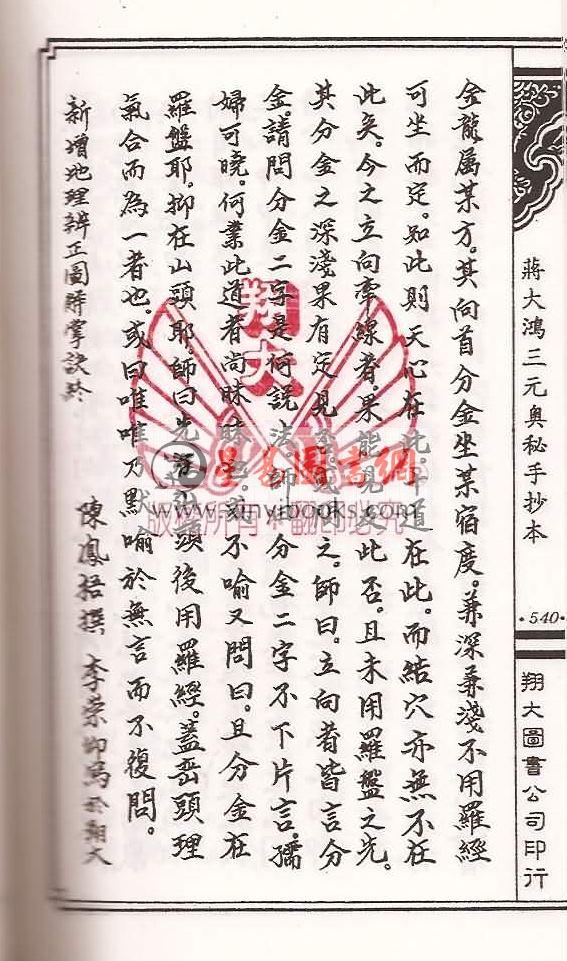 蔣大鴻三元奧秘手抄本
·540·
翔大圖書公司印行
金龍属某方。其向首分金坐某宿度。兼深兼淺不用羅經
可坐而定。知此則天心在此。十道在此。而結穴亦無不在
此矣。今之立向牽線者。果能見及此否。且未用羅盤之先。
其分金之深淺果有定見
之。師曰。立向者皆言分
金。請問分金二字是何説
分金二字不下片言。孺
婦可曉。何業此道者尚昧
不喻又問曰。且分金在
羅盤耶。抑在山頭耶。師曰先
頭後用羅經。蓋巒頭理
氣合而為一者也。或曰唯唯乃默喻於無言而不復問。
新增地理辨正圖
掌訣終
陳鳳梧撰
李崇仰寫於翔大
翔大
星易圖書網
www.xinyibooks.com
版權所有 翻印必究